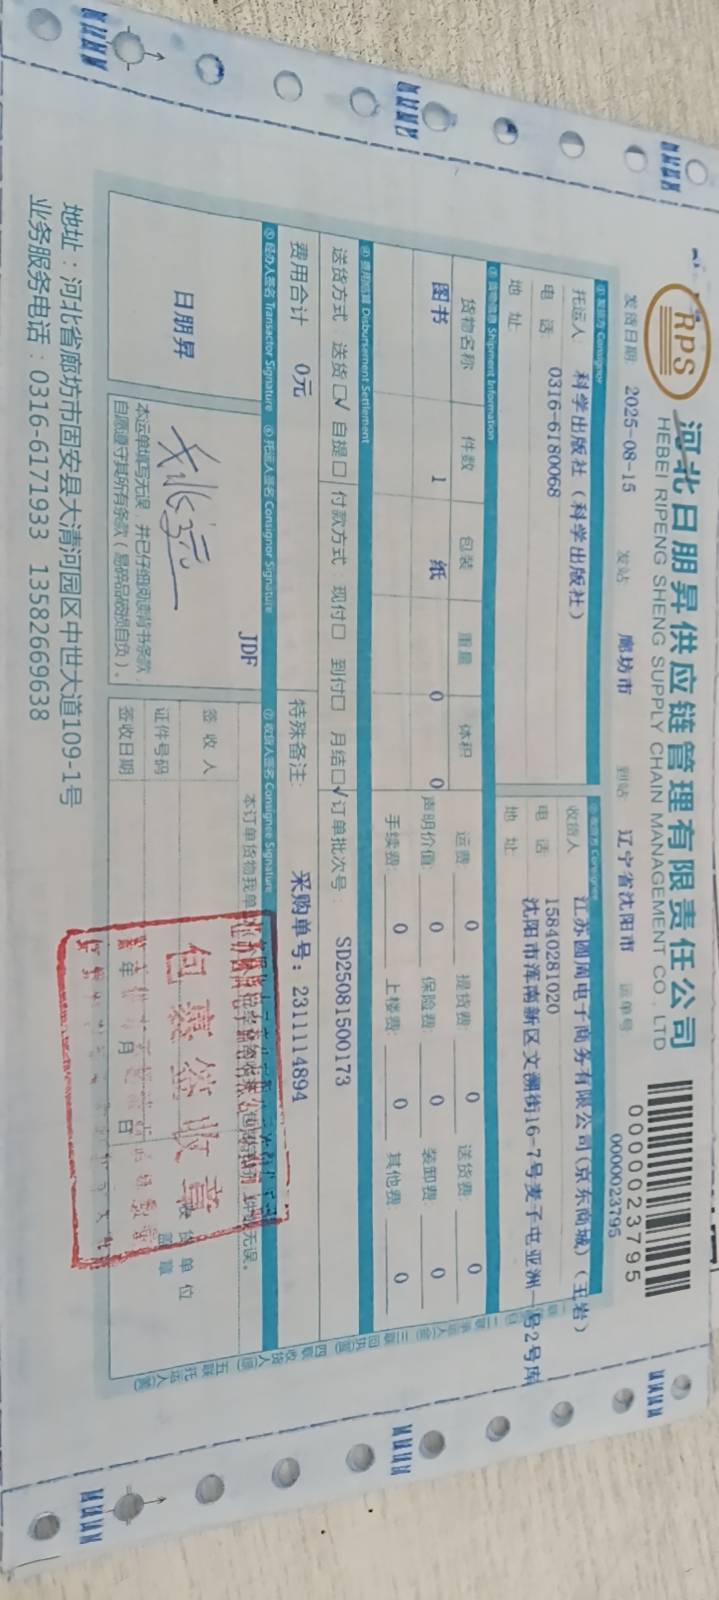 RPS
河北日朋昇供应链管理有限责任公司
HEBEI RIPENG SHENG SUPPLY CHAIN MANAGEMENT CO., LTD
0000023795
发货日期: 2025-08-15 发站 廊坊市 到站 辽宁省沈阳市 运单号 0000023795
①发货方 Consignor
托运人: 科学出版社（科学出版社）
电 话: 0316-6180068
地 址:
②收货方 Consignee
收货人 江苏圆周电子商务有限公司(京东商城)（王岩）
电 话: 15840281020
地 址: 沈阳市浑南新区文溯街16-7号麦子屯亚洲一号2号库
③货物信息 Shipment Information
货物名称 件数 包装 重量 体积
图书 1 纸 0 0
运费: 0 提货费: 0 送货费: 0
声明价值: 0 保险费: 0 装卸费: 0
手续费: 0 上楼费: 0 其他费: 0
④费用结算 Disbursement Settlement
送货方式 送货□√ 自提□ 付款方式: 现付□ 到付□ 月结□√ 订单批次号: SD25081500173
费用合计 0元 特殊备注: 采购单号: 2311114894
JDF
⑤经办人签名 Transactor Signature ⑥托运人签名 Consignor Signature ⑦收货人签名 Consignee Signature
日朋昇
本运单填写无误，并已仔细阅读背书条款，
自愿遵守其所有条款（易碎品破损自负）。
本订单货物我单位
无误。
签 收 人
证件号码
签收日期 年 月 日
收货单位
盖 章
包裹签收章
地址：河北省廊坊市固安县大清河园区中世大道109-1号
业务服务电话：0316-6171933 13582669638